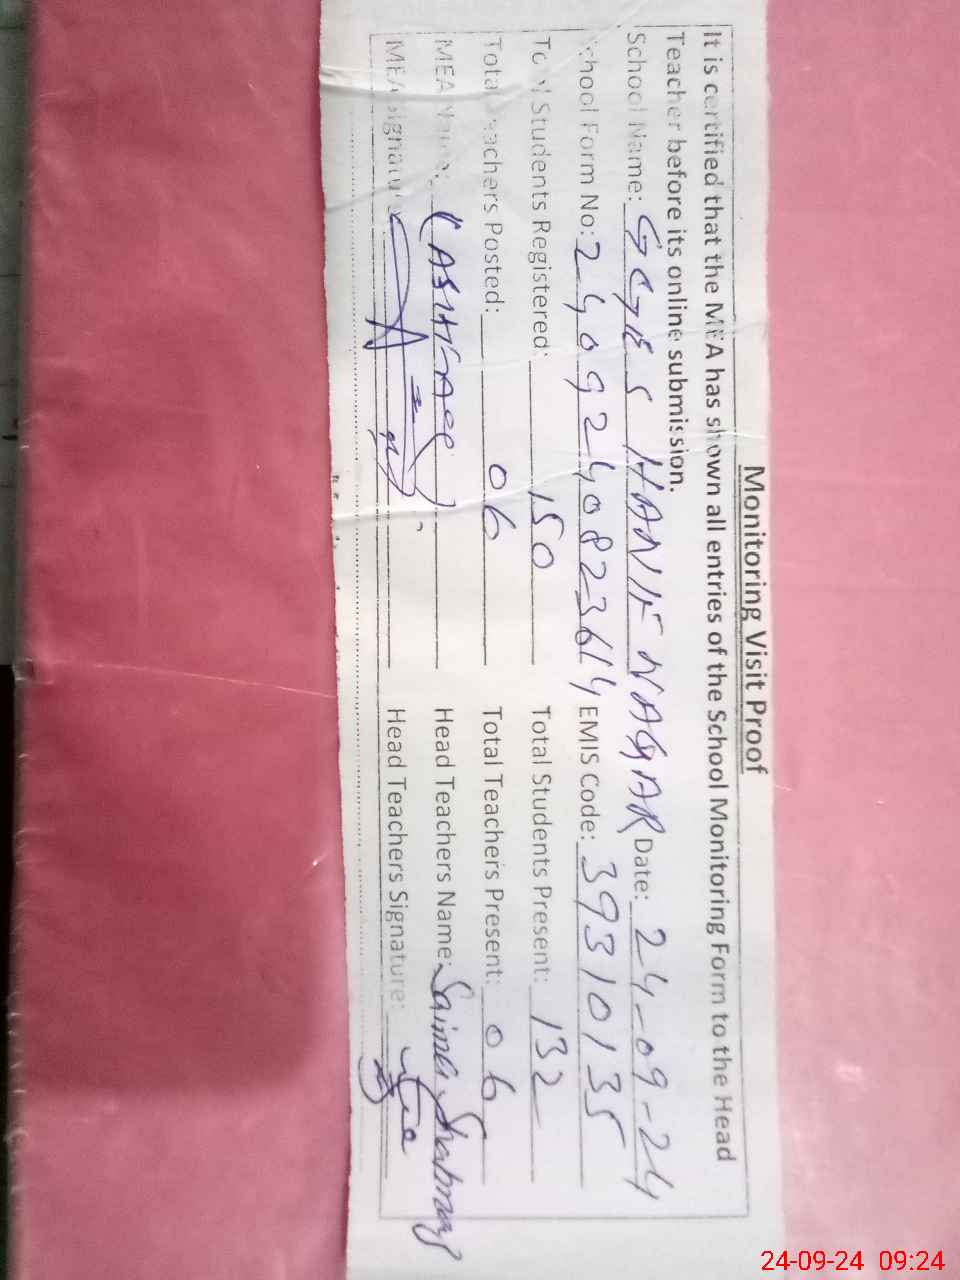 Monitoring Visit Proof
It is certified that the MEA has shown all entries of the School Monitoring Form to the Head
Teacher before its online submission.
School Name: GGES HANIF NAGAR Date: 24-09-24
School Form No: 2409240823614 EMIS Code: 39310135
Total Students Registered: 150 Total Students Present: 132
Total Teachers Posted: 06 Total Teachers Present: 06
MEA Name: Head Teachers Name: Saima Shabnam
MEA Signature: Head Teachers Signature:
24-09-24 09:24